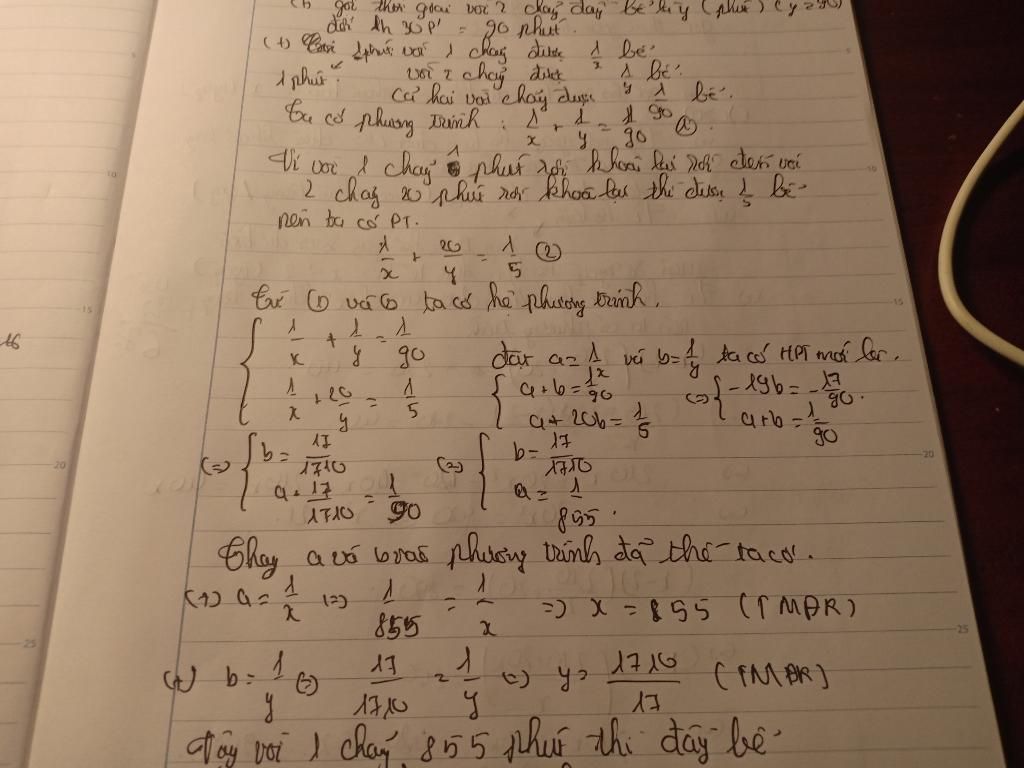 (+) gọi thời gian vòi 2 chảy đầy bể là y (phút) (y > 90)
đổi 1h 30P' = 90 phút.
(+) Trong 1 phút vòi 1 chảy được 1/x bể
1 phút vòi 2 chảy được 1/y bể.
Cả hai vòi chảy được 1/90 bể.
Ta có phương trình : 1/x + 1/y = 1/90 (1).
Vì vòi 1 chảy 1 phút rồi khoá lại rồi vòi
2 chảy 20 phút rồi khoá lại thì được 1/5 bể
nên ta có PT.
1/x + 20/y = 1/5 (2)
Từ (1) và (2) ta có hệ phương trình.
{ 1/x + 1/y = 1/90
đặt a = 1/x và b = 1/y ta có HPT mới là.
1/x + 20/y = 1/5
{ a + b = 1/90
a + 20b = 1/5
(=) { -19b = -17/90.
a + b = 1/90
(=) { b = 17/1710
a + 17/1710 = 1/90
(=) { b = 17/1710
a = 1/855.
Thay a và b vào phương trình đã thế ta có.
(+) a = 1/x (=) 1/855 = 1/x =) x = 855 (TMĐK)
(+) b = 1/y (=) 17/1710 = 1/y (=) y = 1710/17 (TMĐK)
Vậy vòi 1 chảy 855 phút thì đầy bể